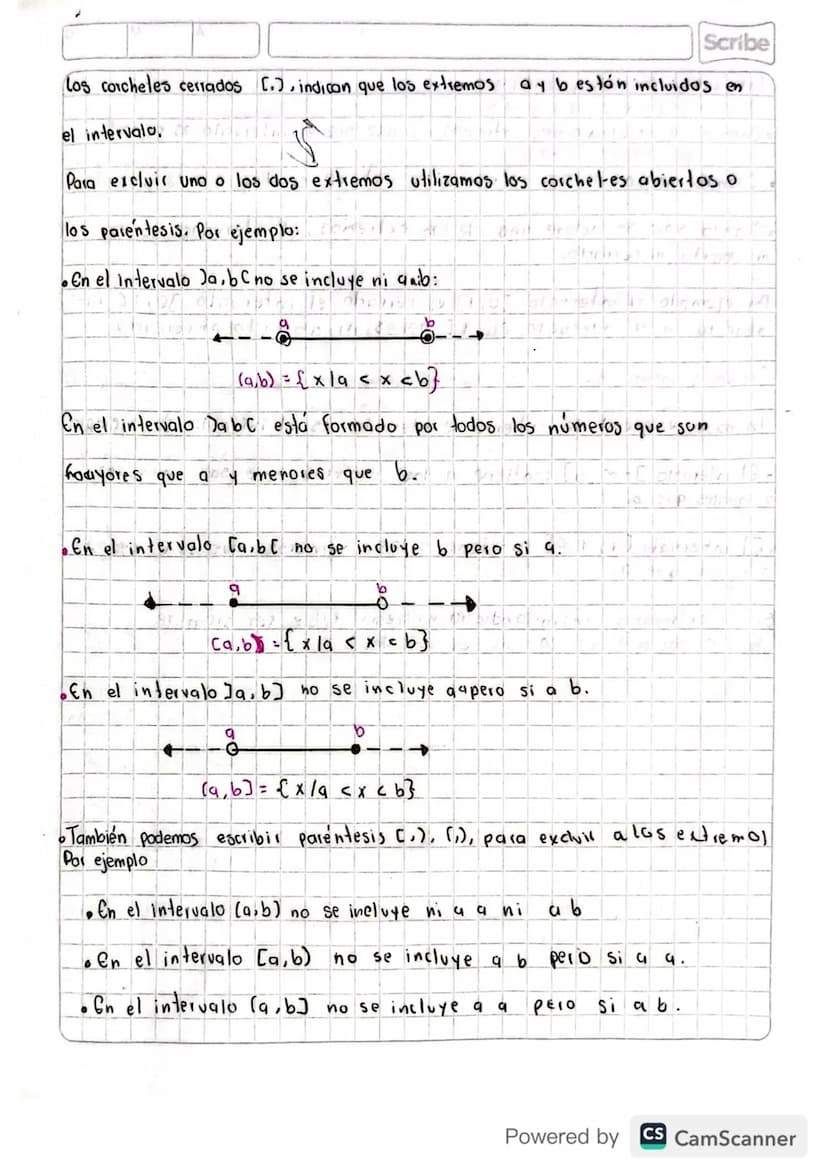 Scribe
Los corcheles cerrados [,], indican que los extremos a y b están incluidos en
el intervalo.
Para excluir uno o los dos extremos utilizamos los corchetes abiertos o
los paréntesis. Por ejemplo:
• En el intervalo ]a,b[ no se incluye ni
a b
(a,b) = {x/a < x < b}
En el intervalo ]ab[ está formado por todos los números que son
que a y menores que b.
• En el intervalo [a,b[ no se incluye b pero si a.
a b
[a,b) = {x/a < x < b}
• En el intervalo ]a,b] no se incluye pero si a b.
a b
(a,b] = {x/a < x < b}
• También podemos escribir paréntesis para excluir a los extremos
Por ejemplo
• En el intervalo (a,b) no se incluye ni a a ni a b
• En el intervalo [a,b) no se incluye a b pero si a a.
• En el intervalo (a,b] no se incluye a a pero si a b.
Powered by CS CamScanner